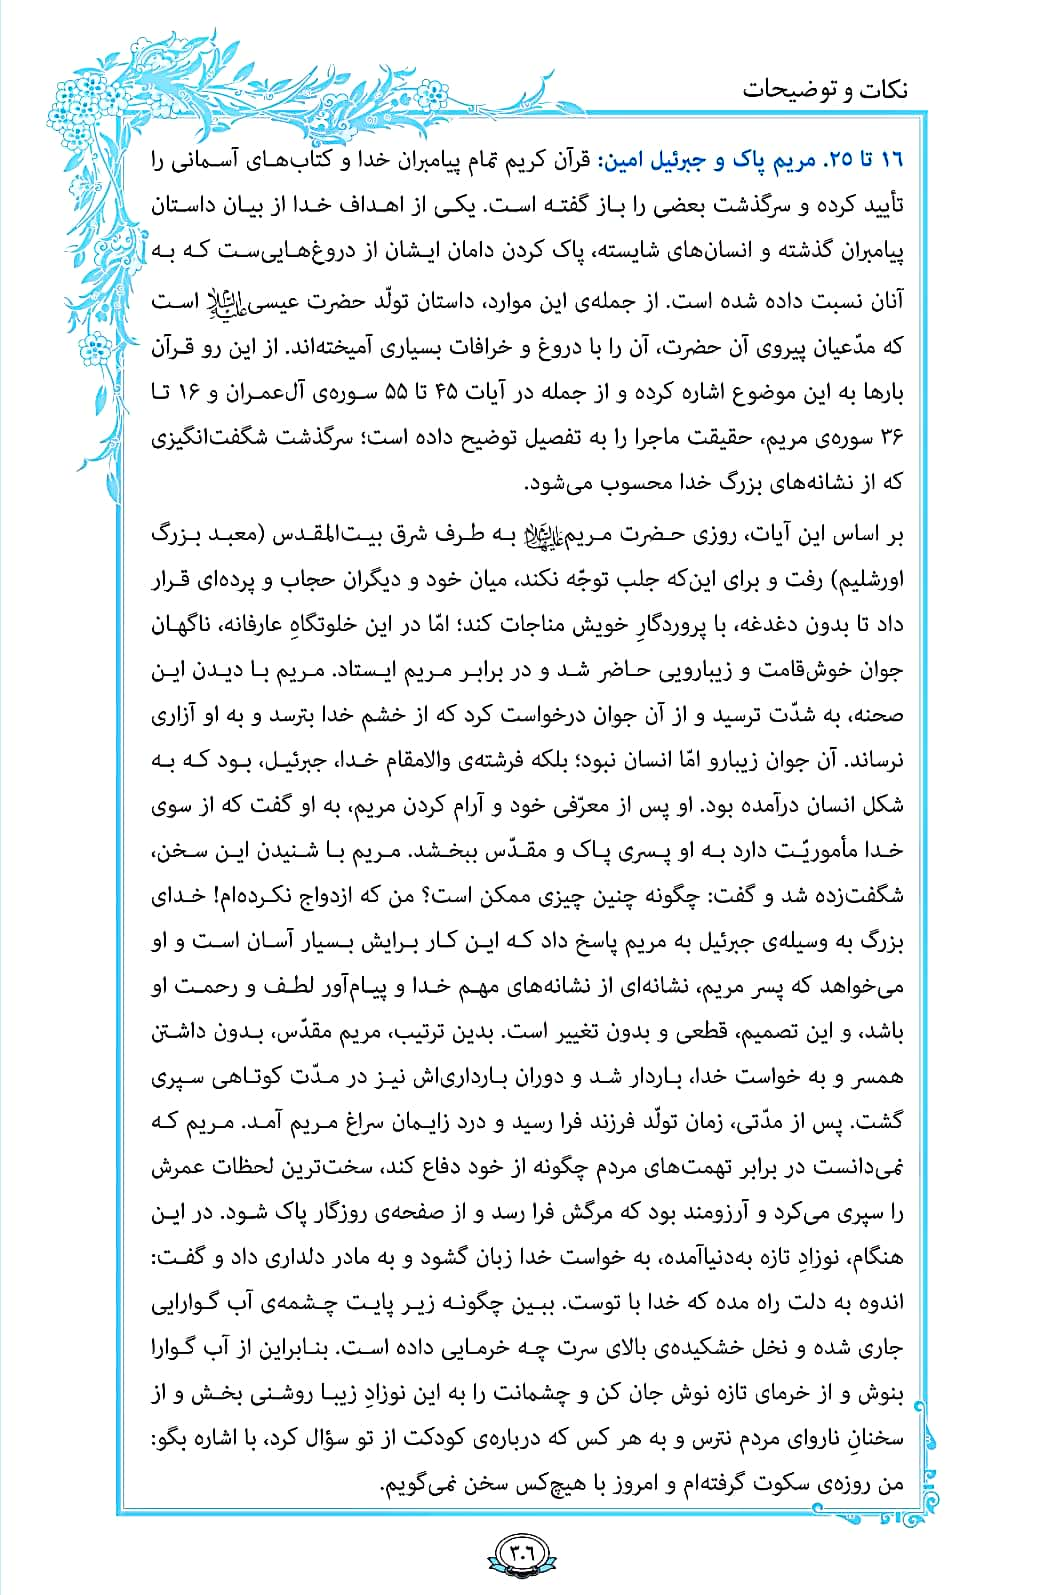 نکات و توضیحات
۱۶ تا ۲۵. مریم پاک و جبرئیل امین: قرآن کریم تمام پیامبران خدا و کتاب‌های آسمانی را
تأیید کرده و سرگذشت بعضی را باز گفته است. یکی از اهداف خدا از بیان داستان
پیامبران گذشته و انسان‌های شایسته، پاک کردن دامان ایشان از دروغ‌هایی‌ست که به
آنان نسبت داده شده است. از جمله‌ی این موارد، داستان تولّد حضرت عیسی علیه‌السلام است
که مدّعیان پیروی آن حضرت، آن را با دروغ و خرافات بسیاری آمیخته‌اند. از این رو قرآن
بارها به این موضوع اشاره کرده و از جمله در آیات ۴۵ تا ۵۵ سوره‌ی آل‌عمران و ۱۶ تا
۳۶ سوره‌ی مریم، حقیقت ماجرا را به تفصیل توضیح داده است؛ سرگذشت شگفت‌انگیزی
که از نشانه‌های بزرگ خدا محسوب می‌شود.
بر اساس این آیات، روزی حضرت مریم علیهاالسلام به طرف شرق بیت‌المقدس (معبد بزرگ
اورشلیم) رفت و برای این‌که جلب توجّه نکند، میان خود و دیگران حجاب و پرده‌ای قرار
داد تا بدون دغدغه، با پروردگارِ خویش مناجات کند؛ امّا در این خلوتگاهِ عارفانه، ناگهان
جوان خوش‌قامت و زیبارویی حاضر شد و در برابر مریم ایستاد. مریم با دیدن این
صحنه، به شدّت ترسید و از آن جوان درخواست کرد که از خشم خدا بترسد و به او آزاری
نرساند. آن جوان زیبارو امّا انسان نبود؛ بلکه فرشته‌ی والامقام خدا، جبرئیل، بود که به
شکل انسان درآمده بود. او پس از معرّفی خود و آرام کردن مریم، به او گفت که از سوی
خدا مأموریّت دارد به او پسری پاک و مقدّس ببخشد. مریم با شنیدن این سخن،
شگفت‌زده شد و گفت: چگونه چنین چیزی ممکن است؟ من که ازدواج نکرده‌ام! خدای
بزرگ به وسیله‌ی جبرئیل به مریم پاسخ داد که این کار برایش بسیار آسان است و او
می‌خواهد که پسر مریم، نشانه‌ای از نشانه‌های مهم خدا و پیام‌آور لطف و رحمت او
باشد، و این تصمیم، قطعی و بدون تغییر است. بدین ترتیب، مریم مقدّس، بدون داشتن
همسر و به خواست خدا، باردار شد و دوران بارداری‌اش نیز در مدّت کوتاهی سپری
گشت. پس از مدّتی، زمان تولّد فرزند فرا رسید و درد زایمان سراغ مریم آمد. مریم که
نمی‌دانست در برابر تهمت‌های مردم چگونه از خود دفاع کند، سخت‌ترین لحظات عمرش
را سپری می‌کرد و آرزومند بود که مرگش فرا رسد و از صفحه‌ی روزگار پاک شود. در این
هنگام، نوزادِ تازه به‌دنیاآمده، به خواست خدا زبان گشود و به مادر دلداری داد و گفت:
اندوه به دلت راه مده که خدا با توست. ببین چگونه زیر پایت چشمه‌ی آب گوارایی
جاری شده و نخل خشکیده‌ی بالای سرت چه خرمایی داده است. بنابراین از آب گوارا
بنوش و از خرمای تازه نوش جان کن و چشمانت را به این نوزادِ زیبا روشنی بخش و از
سخنانِ ناروای مردم نترس و به هر کس که درباره‌ی کودکت از تو سؤال کرد، با اشاره بگو:
من روزه‌ی سکوت گرفته‌ام و امروز با هیچ‌کس سخن نمی‌گویم.
۳۰۶